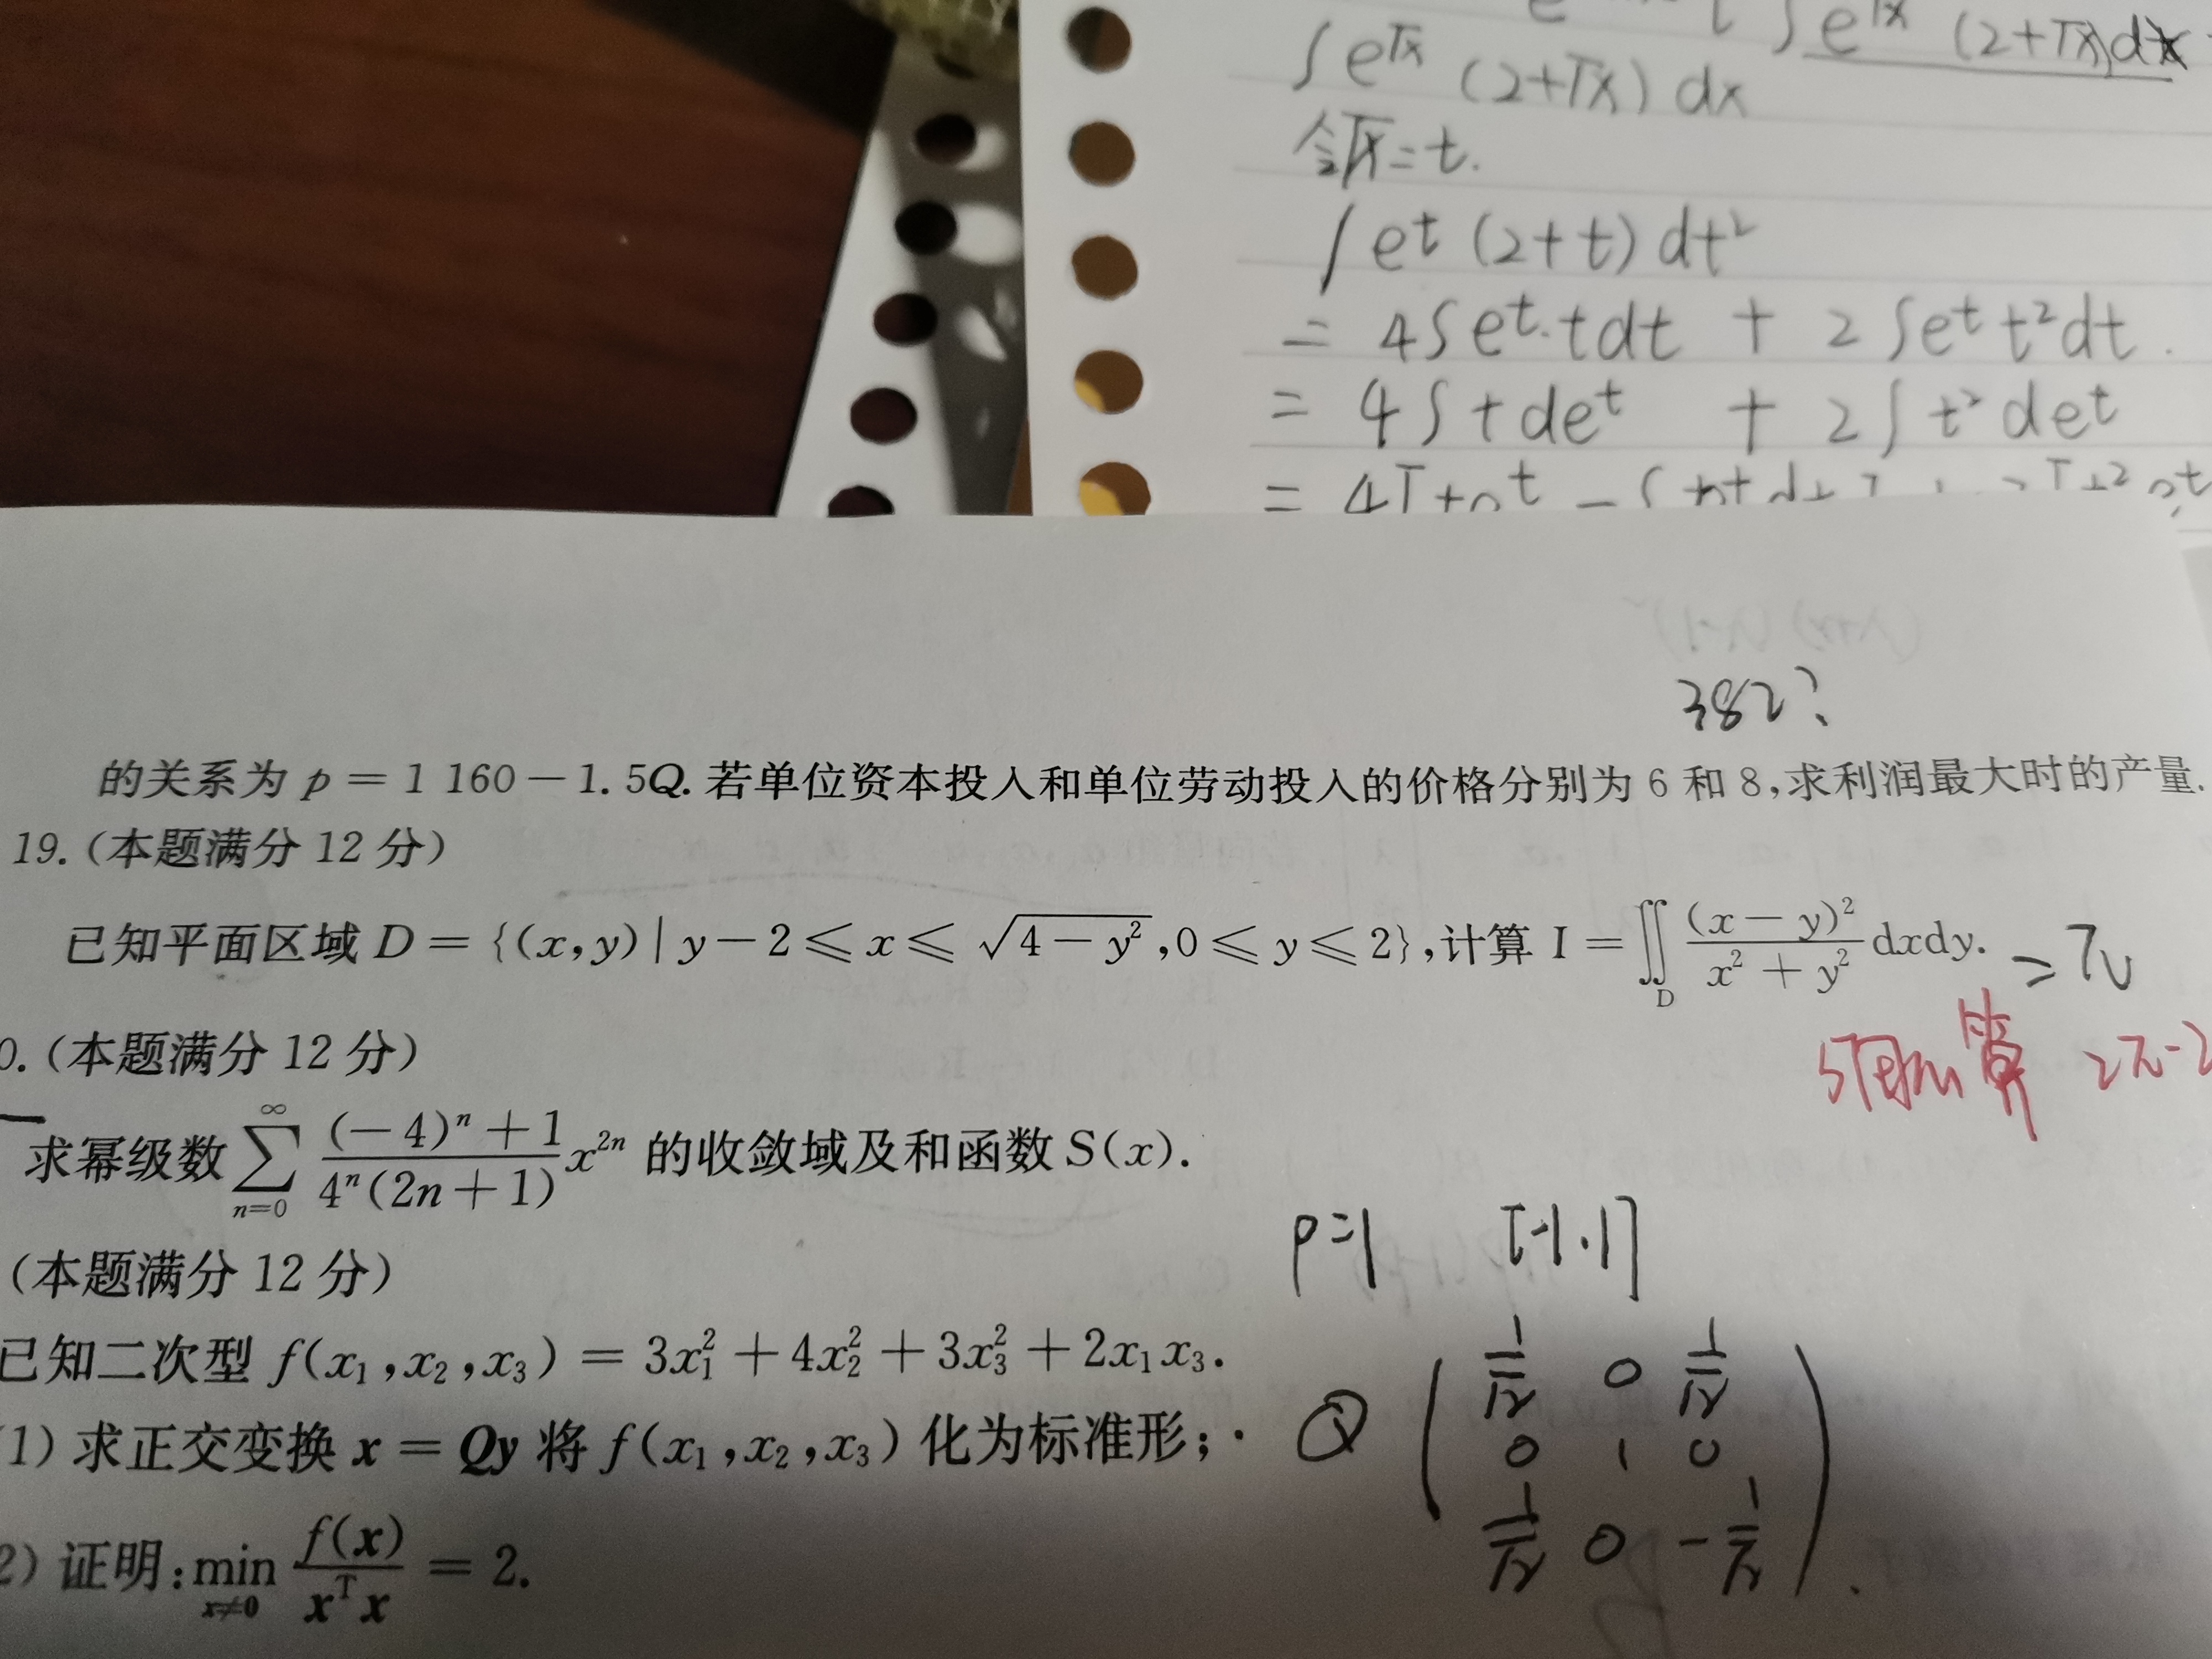 ∫e^√x (2+√x)dx
∫e^√x (2+√x) dx
令√x=t.
∫e^t (2+t) dt²
= 4∫e^t·tdt + 2∫e^t t²dt.
= 4∫tde^t + 2∫t²de^t
382?
的关系为 p = 1 160 − 1.5Q. 若单位资本投入和单位劳动投入的价格分别为 6 和 8,求利润最大时的产量.
19.(本题满分 12 分)
已知平面区域 D = {(x,y) | y − 2 ⩽ x ⩽ √(4 − y²), 0 ⩽ y ⩽ 2},计算 I = ∬_D (x − y)²/(x² + y²) dxdy. = π
算 2π-2
0.(本题满分 12 分)
求幂级数 ∑_{n=0}^{∞} ((−4)^n + 1)/(4^n(2n + 1)) x^{2n} 的收敛域及和函数 S(x).
ρ=1 [-1,1]
(本题满分 12 分)
已知二次型 f(x₁,x₂,x₃) = 3x₁² + 4x₂² + 3x₃² + 2x₁x₃.
1) 求正交变换 x = Qy 将 f(x₁,x₂,x₃) 化为标准形;
Q ( 1/√2 0 1/√2
0 1 0
1/√2 0 -1/√2 ).
2) 证明: min_{x≠0} f(x)/(x^T x) = 2.